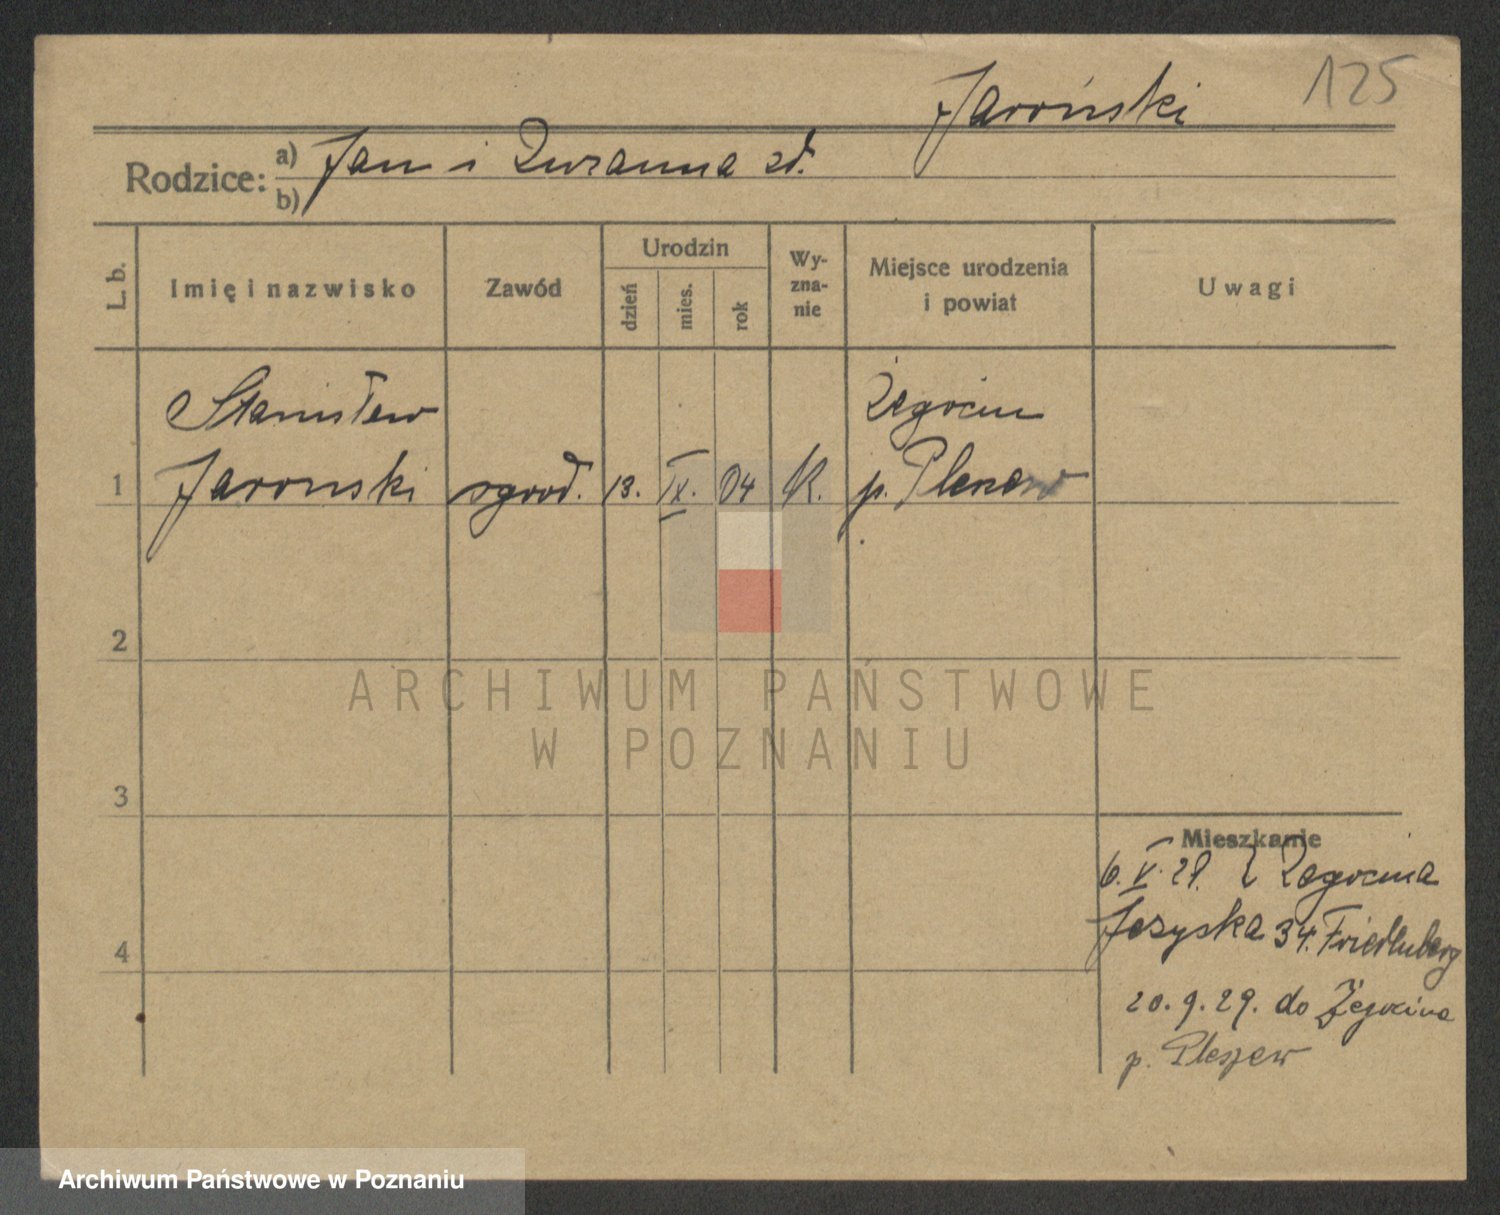 125
Jaroński
Rodzice: a) Jan i Zuzanna zd.
b)
L. b.
Imię i nazwisko
Zawód
Urodzin
dzień
mies.
rok
Wy-
zna-
nie
Miejsce urodzenia
i powiat
Uwagi
Stanisław
Żegocin
1 Jaronski ogrod. 13. IX. 04 K. p. Pleszew
2
3
4
ARCHIWUM PAŃSTWOWE
W POZNANIU
Mieszkanie
6. V. 29. Z Żegocina
Jeżycka 34. Friedenberg
20. 9. 29. do Żegocina
p. Pleszew
Archiwum Państwowe w Poznaniu